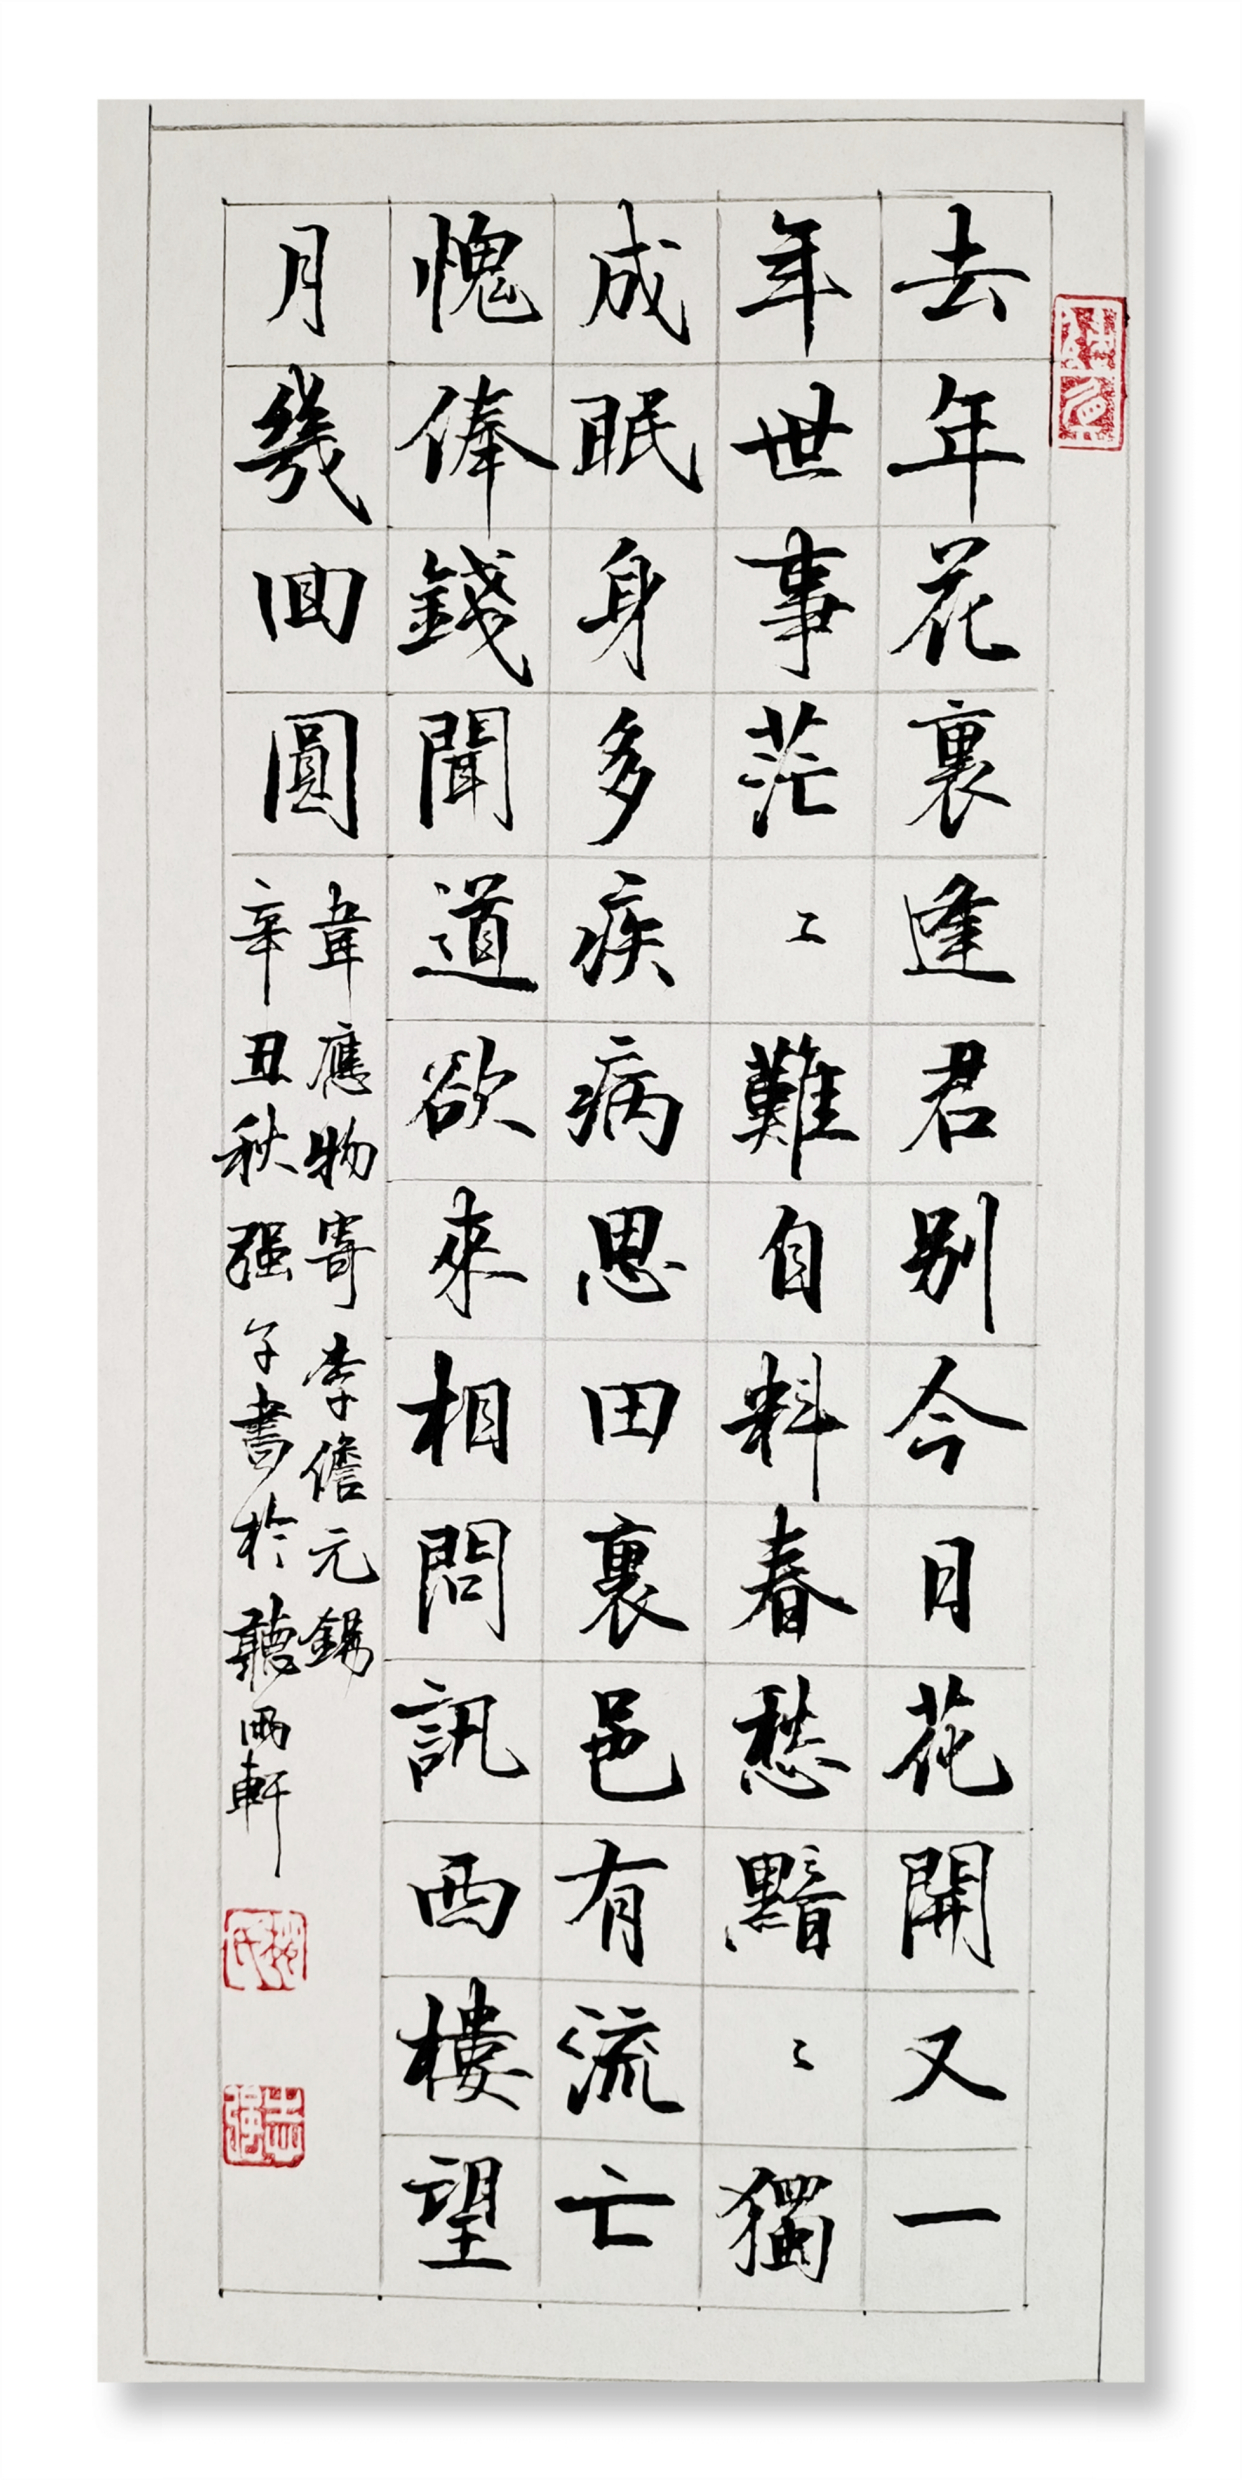 去年花裏逢君别今日花開又一
年世事茫〻難自料春愁黯〻獨
成眠身多疾病思田裏邑有流亡
愧俸錢聞道欲來相問訊西樓望
月幾回圓
韋應物寄李儋元錫
辛丑秋强子書於聽雨軒
志强